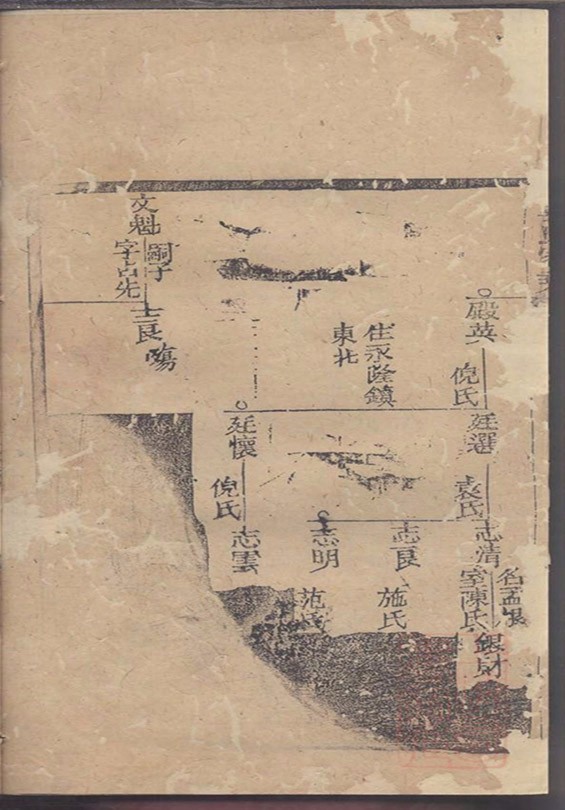 殿英
倪氏
住永隆鎮
東北
廷選
袁氏
志清
名孟
室陳氏
銀財
志良
施氏
志明
范氏
廷懷
倪氏
志雲
文魁
嗣子
字占先
士良
殤